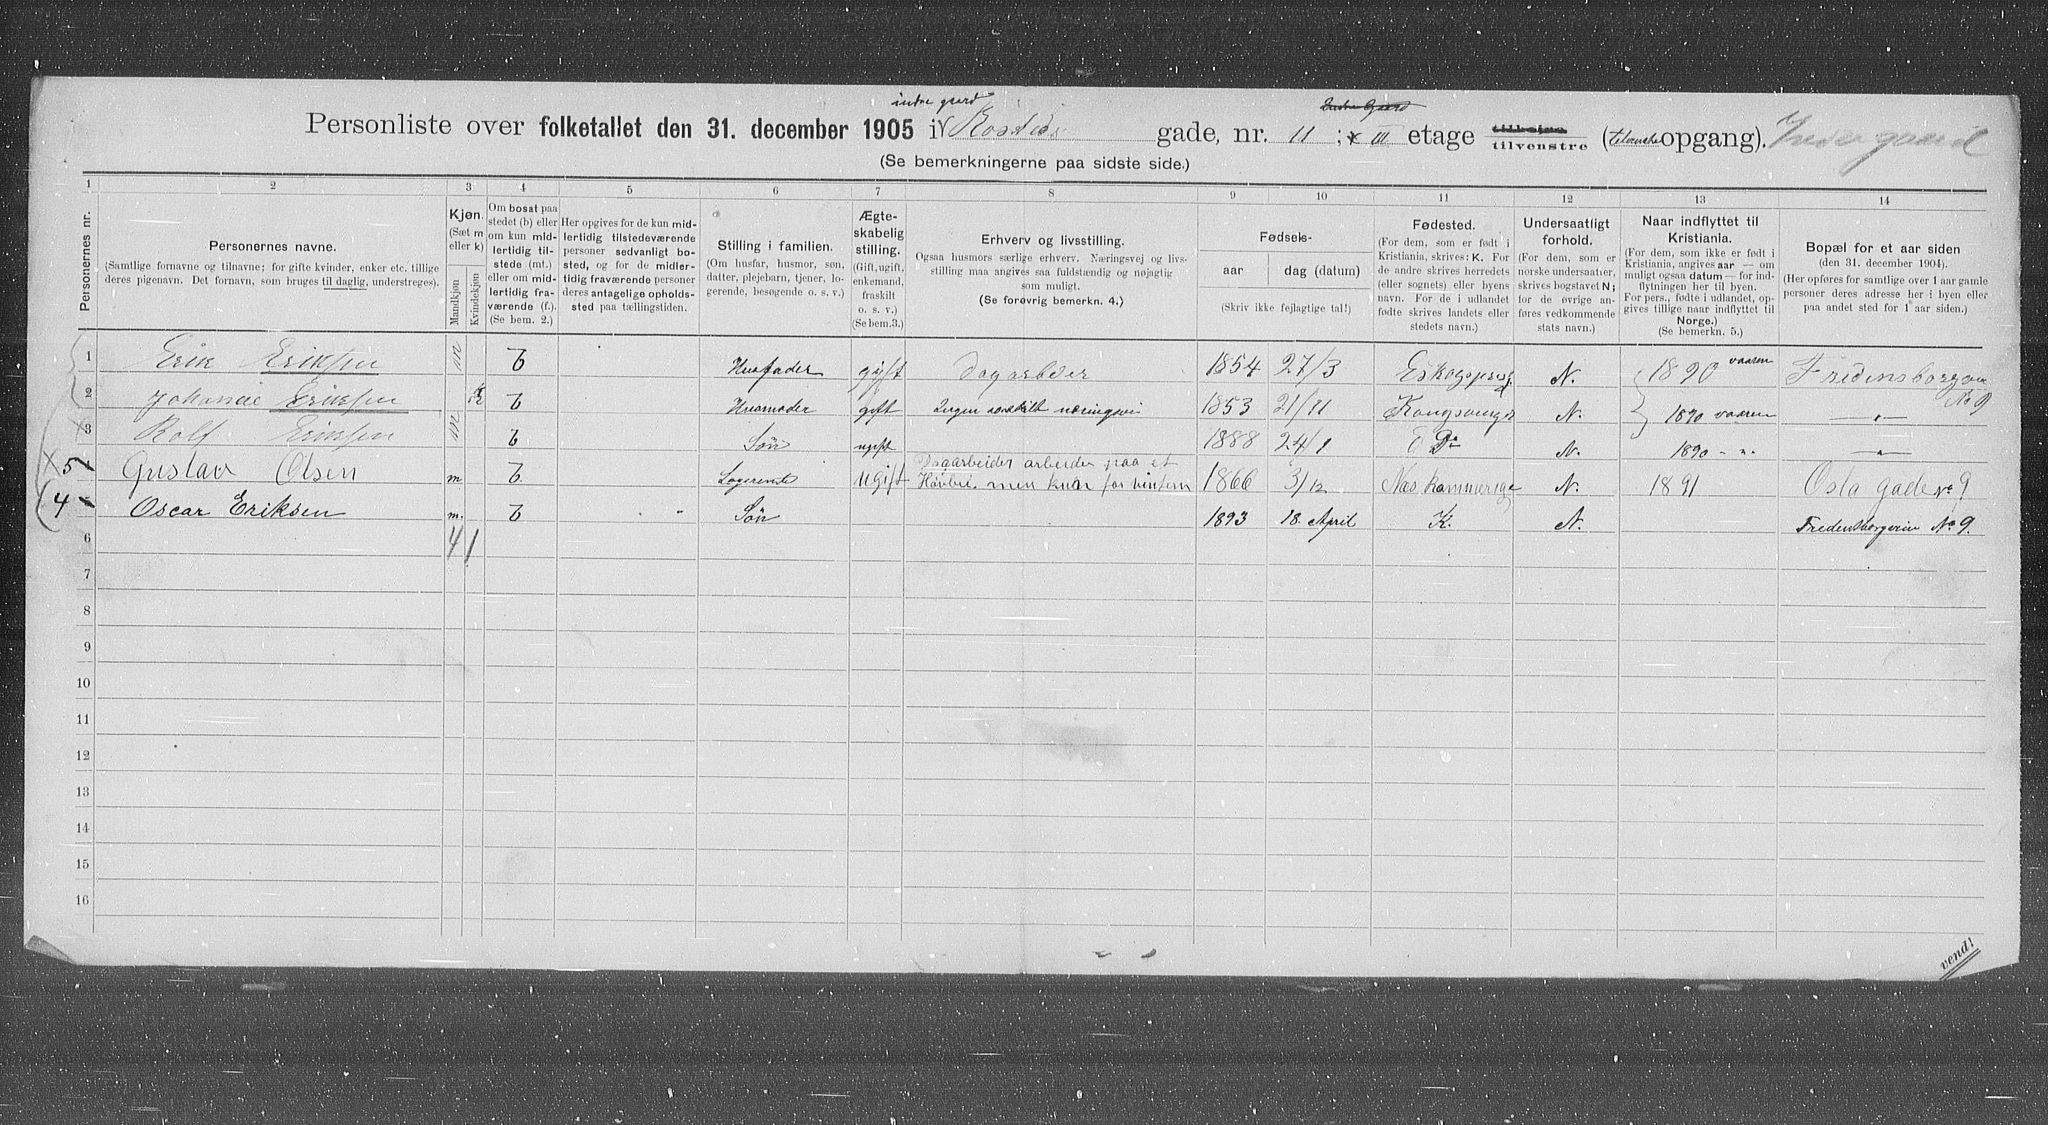 indre gaard
Indre Gaard
Personliste over folketallet den 31. december 1905 i Rosteds gade, nr. 11 ; III etage tilhøire tilvenstre ( opgang). Indre gaard
(Se bemerkningerne paa sidste side.)
1 2 3 4 5 6 7 8 9 10 11 12 13 14
Personernes nr.
Personernes navne.
(Samtlige fornavne og tilnavne; for gifte kvinder, enker etc. tillige
deres pigenavn. Det fornavn, som bruges til daglig, understreges).
Kjøn.
(Sæt m
eller k)
Mandkjøn
Kvindekjøn
Om bosat paa
stedet (b) eller
om kun midlertidig
tilstede (mt.)
eller om midlertidig
fraværende (f.).
(Se bem. 2.)
Her opgives for de kun midlertidig
tilstedeværende
personer sedvanligt bosted,
og for de midlertidig
fraværende personer
deres antagelige opholdssted
paa tællingstiden.
Stilling i familien.
(Om husfar, husmor, søn,
datter, plejebarn, tjener, logerende,
besøgende o. s. v.)
Ægteskabelig
stilling.
(Gift, ugift,
enkemand,
fraskilt
o. s. v.)
(Se bem.3.)
Erhverv og livsstilling.
Ogsaa husmors særlige erhverv. Næringsvej og livsstilling
maa angives saa fuldstændig og nøjagtig
som muligt.
(Se forøvrig bemerkn. 4.)
Fødsels-
aar dag (datum)
(Skriv ikke fejlagtige tal!)
Fødested.
(For dem, som er født i
Kristiania, skrives: K. For
de andre skrives herredets
(eller sognets) eller byens
navn. For de i udlandet
fødte skrives landets eller
stedets navn.)
Undersaatligt
forhold.
(For norske undersaatter,
skrives bogstavet N;
for de øvrige anføres
vedkommende
stats navn.)
Naar indflyttet til
Kristiania.
(For dem, som ikke er født i
Kristiania, angives aar — om
muligt ogsaa datum — for indflytningen
her til byen.
For pers., fødte i udlandet, opgives
tillige naar indflyttet til
Norge.)
(Se bemerkn. 5.)
Bopæl for et aar siden
(den 31. december 1904).
(Her opføres for samtlige over 1 aar gamle
personer deres adresse her i byen eller
paa andet sted for 1 aar siden.)
1 Erik Eriksen m b Husfader gift Dagarbeder 1854 27/3 N. 1890 vaaren Fredensborgvn No 9
2 Johanne Eriksen k b Husmoder gift Ingen særskilt næringsvei 1853 21/11 Kongsvinger N. 1890 vaaren — „ —
3 Rolf Eriksen m b Søn ugift 1888 24/1 Do N. 1890 „ — „ —
5 4 Gustav Olsen m b Logerende ugift Dagarbeider arbeider paa et
men kun for vintern 1866 3/12 N. 1891 Osla gade No 9
4 5 Oscar Eriksen m. b „ Søn 1893 18 April K. N. Fredensborgvein No 9.
6 4 1
7
8
9
10
11
12
13
14
15
16
vend!